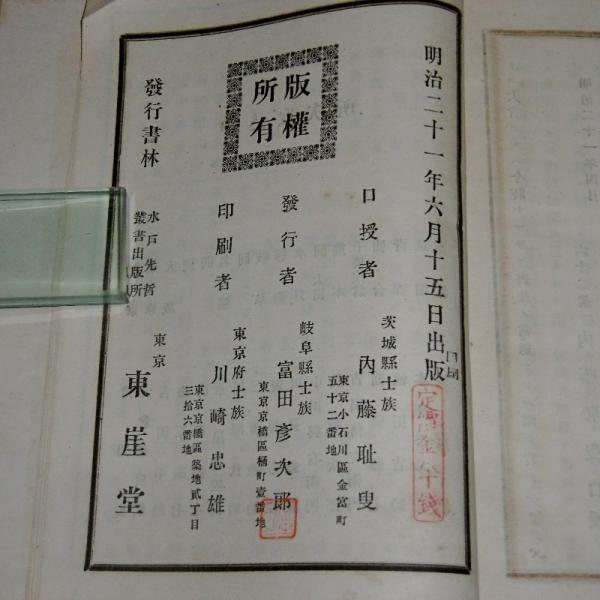 明治二十一年六月十五日出版
定價金八十錢
版權
所有
口授者
茨城縣士族
內藤耻叟
東京小石川區金富町
五十二番地
發行者
岐阜縣士族
富田彥次郎
東京京橋區桶町壹番地
印刷者
東京府士族
川崎忠雄
東京京橋區築地貳丁目
三拾六番地
發行書林
水戶先哲
叢書出版所
東京
東崖堂